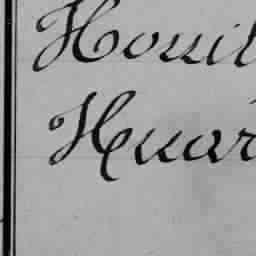 Houil
Huar